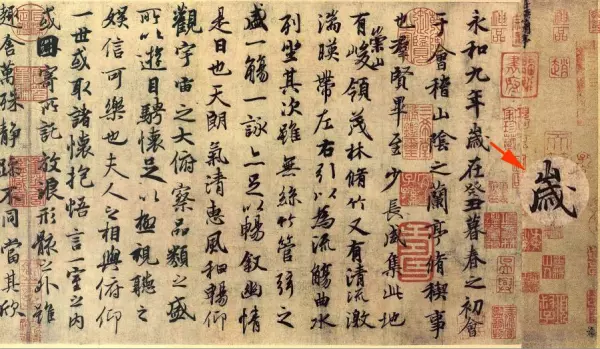 歲
永和九年歲在癸丑暮春之初會
于會稽山陰之蘭亭脩稧事
也羣賢畢至少長咸集此地
有崇山峻領茂林脩竹又有清流激
湍暎帶左右引以為流觴曲水
列坐其次雖無絲竹管弦之
盛一觴一詠亦足以暢敘幽情
是日也天朗氣清惠風和暢仰
觀宇宙之大俯察品類之盛
所以遊目騁懷足以極視聽之
娛信可樂也夫人之相與俯仰
一世或取諸懷抱悟言一室之內
或因寄所託放浪形骸之外雖
趣舍萬殊靜躁不同當其欣